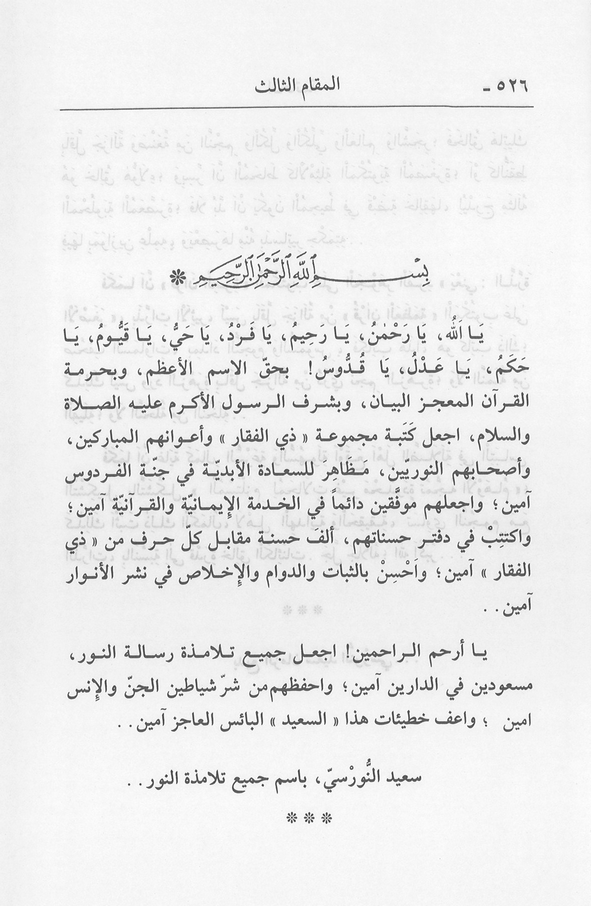 ٥٢٦ - المقام الثالث
بِسْمِ اللهِ الرَّحْمٰنِ الرَّحِيمِ *
يَا اَللهُ، يَا رَحْمٰنُ، يَا رَحِيمُ، يَا فَرْدُ، يَا حَيُّ، يَا قَيُّومُ، يَا
حَكَمُ، يَا عَدْلُ، يَا قُدُّوسُ! بحق الاسم الأعظم، وبحرمة
القرآن المعجز البيان، وبشرف الرسول الأكرم عليه الصلاة
والسلام، اجعل كَتَبة مجموعة « ذي الفقار » وأعوانهم المباركين،
وأصحابهم النوريين، مَظاهِرَ للسعادة الأبديّة في جنّة الفردوس
آمين؛ واجعلهم موفَّقين دائماً في الخدمة الإيمانيّة والقرآنيّة آمين؛
واكتبْ في دفتر حسناتهم، ألفَ حسنة مقابل كل حرف من « ذي
الفقار » آمين؛ واَحْسِنْ بالثبات والدوام والإخلاص في نشر الأنوار
آمين . .
يا أرحم الراحمين! اجعل جميع تلامذة رسالة النور،
مسعودين في الدارين آمين؛ واحفظهم من شرّ شياطين الجنّ والإنس
امين ؛ واعف خطيئات هذا « السعيد » البائس العاجز آمين . .
سعيد النُّورْسيّ، باسم جميع تلامذة النور . .
* * *